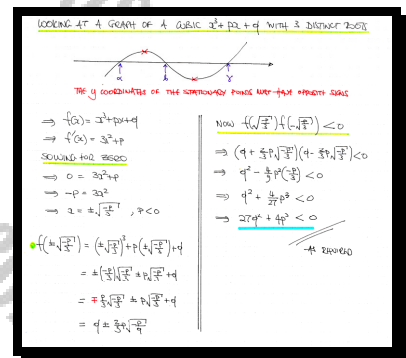 LOOKING AT A GRAPH OF A CUBIC x³+px+q WITH 3 DISTINCT ROOTS
α β γ
THE y COORDINATES OF THE STATIONARY POINTS MUST HAVE OPPOSITE SIGNS
⇒ f(x) = x³+px+q
⇒ f'(x) = 3x²+p
SOLVING FOR ZERO
⇒ 0 = 3x²+p
⇒ -p = 3x²
⇒ x = ±√(-p/3) , p<0
● f(±√(-p/3)) = (±√(-p/3))³ + p(±√(-p/3)) + q
= ±(-p/3)√(-p/3) ± p√(-p/3) + q
= ∓ p/3 √(-p/3) ± p√(-p/3) + q
= q ± 2/3 p√(-p/3)
NOW f(√(-p/3)) f(-√(-p/3)) < 0
⇒ (q + 2/3 p√(-p/3))(q - 2/3 p√(-p/3)) < 0
⇒ q² - 4/9 p²(-p/3) < 0
⇒ q² + 4/27 p³ < 0
⇒ 27q² + 4p³ < 0
AS REQUIRED